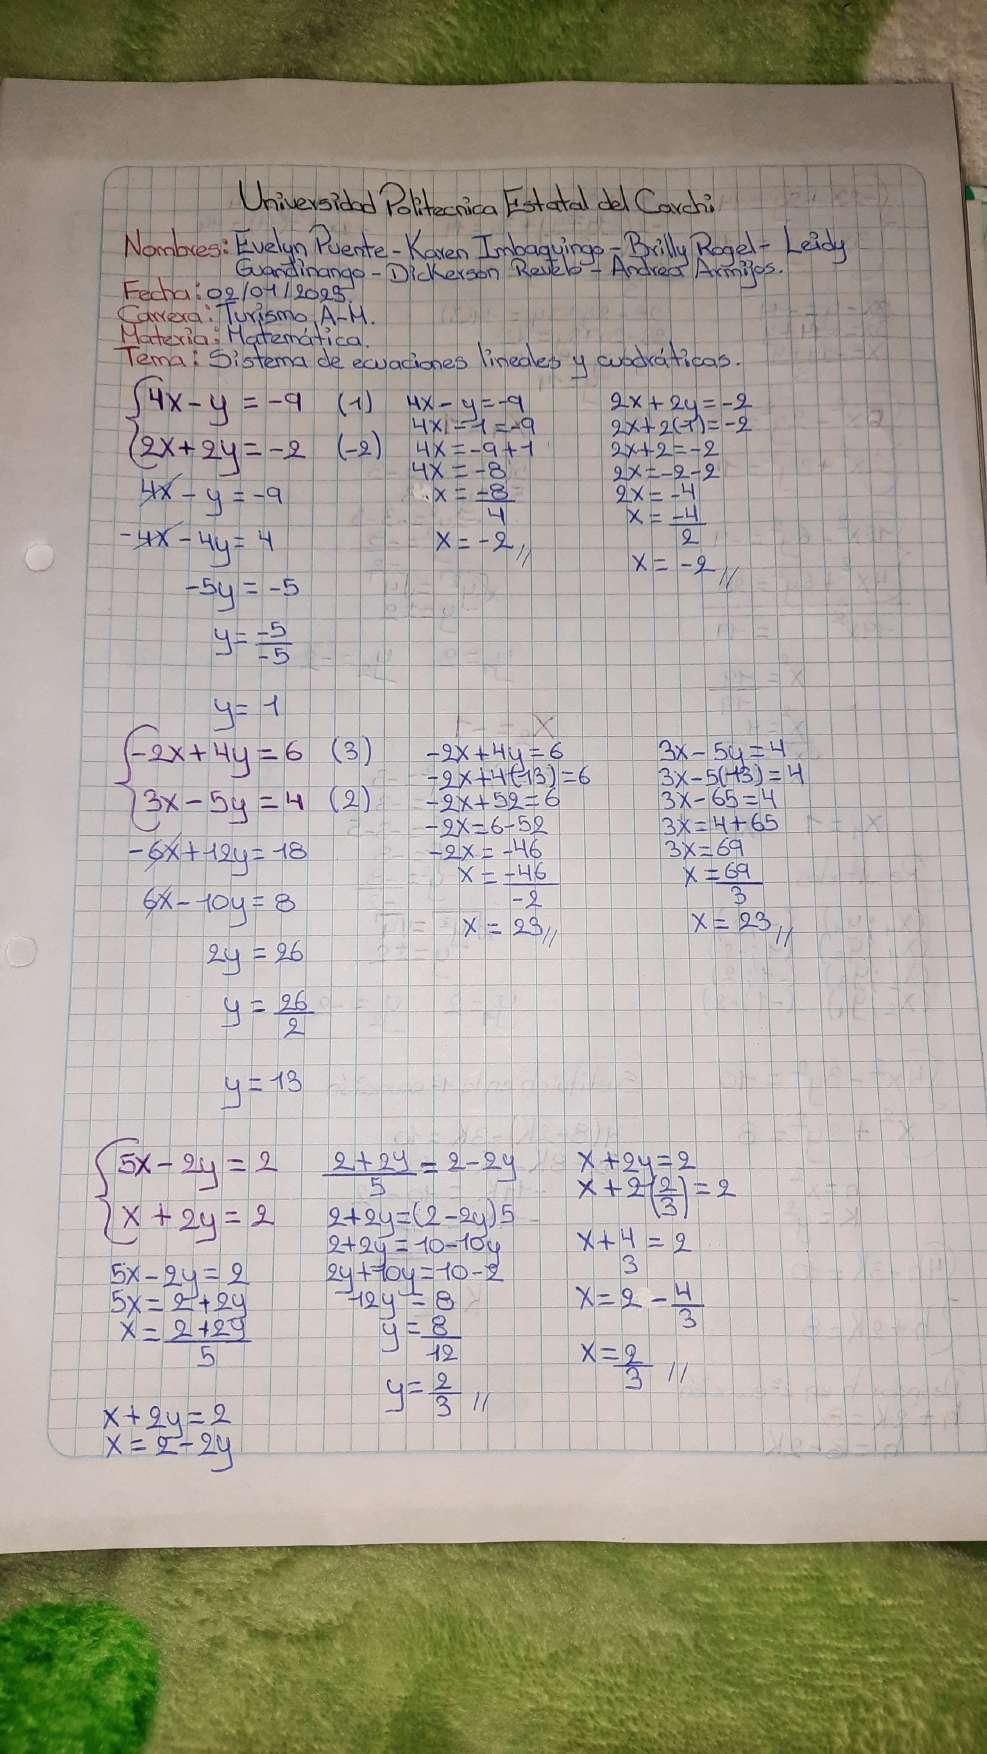 Universidad Politecnica Estatal del Carchi
Nombres: Evelyn Puente - Karen Imbaquingo - Brilly Rogel - Leidy
Guandinango - Dickerson Revelo - Andrea Armijos.
Fecha: 02/01/2023.
Carrera: Turismo A-M.
Materia: Matemática.
Tema: Sistema de ecuaciones lineales y cuadráticas.
4x - y = -9 (1)
2x + 2y = -2 (-2)
4x - y = -9
-4x - 4y = 4
-5y = -5
y = -5/-5
y = 1
4x - y = -9
4x - 1 = -9
4x = -9 + 1
4x = -8
x = -8/4
x = -2 //
2x + 2y = -2
2x + 2(1) = -2
2x + 2 = -2
2x = -2 - 2
2x = -4
x = -4/2
x = -2 //
-2x + 4y = 6 (3)
3x - 5y = 4 (2)
-6x + 12y = 18
6x - 10y = 8
2y = 26
y = 26/2
y = 13
-2x + 4y = 6
-2x + 4(13) = 6
-2x + 52 = 6
-2x = 6 - 52
-2x = -46
x = -46/-2
x = 23 //
3x - 5y = 4
3x - 5(13) = 4
3x - 65 = 4
3x = 4 + 65
3x = 69
x = 69/3
x = 23 //
5x - 2y = 2
x + 2y = 2
5x - 2y = 2
5x = 2 + 2y
x = 2 + 2y/5
x + 2y = 2
x = 2 - 2y
2 + 2y/5 = 2 - 2y
2 + 2y = (2 - 2y)5
2 + 2y = 10 - 10y
2y + 10y = 10 - 2
12y = 8
y = 8/12
y = 2/3 //
x + 2y = 2
x + 2(2/3) = 2
x + 4/3 = 2
x = 2 - 4/3
x = 2/3 //